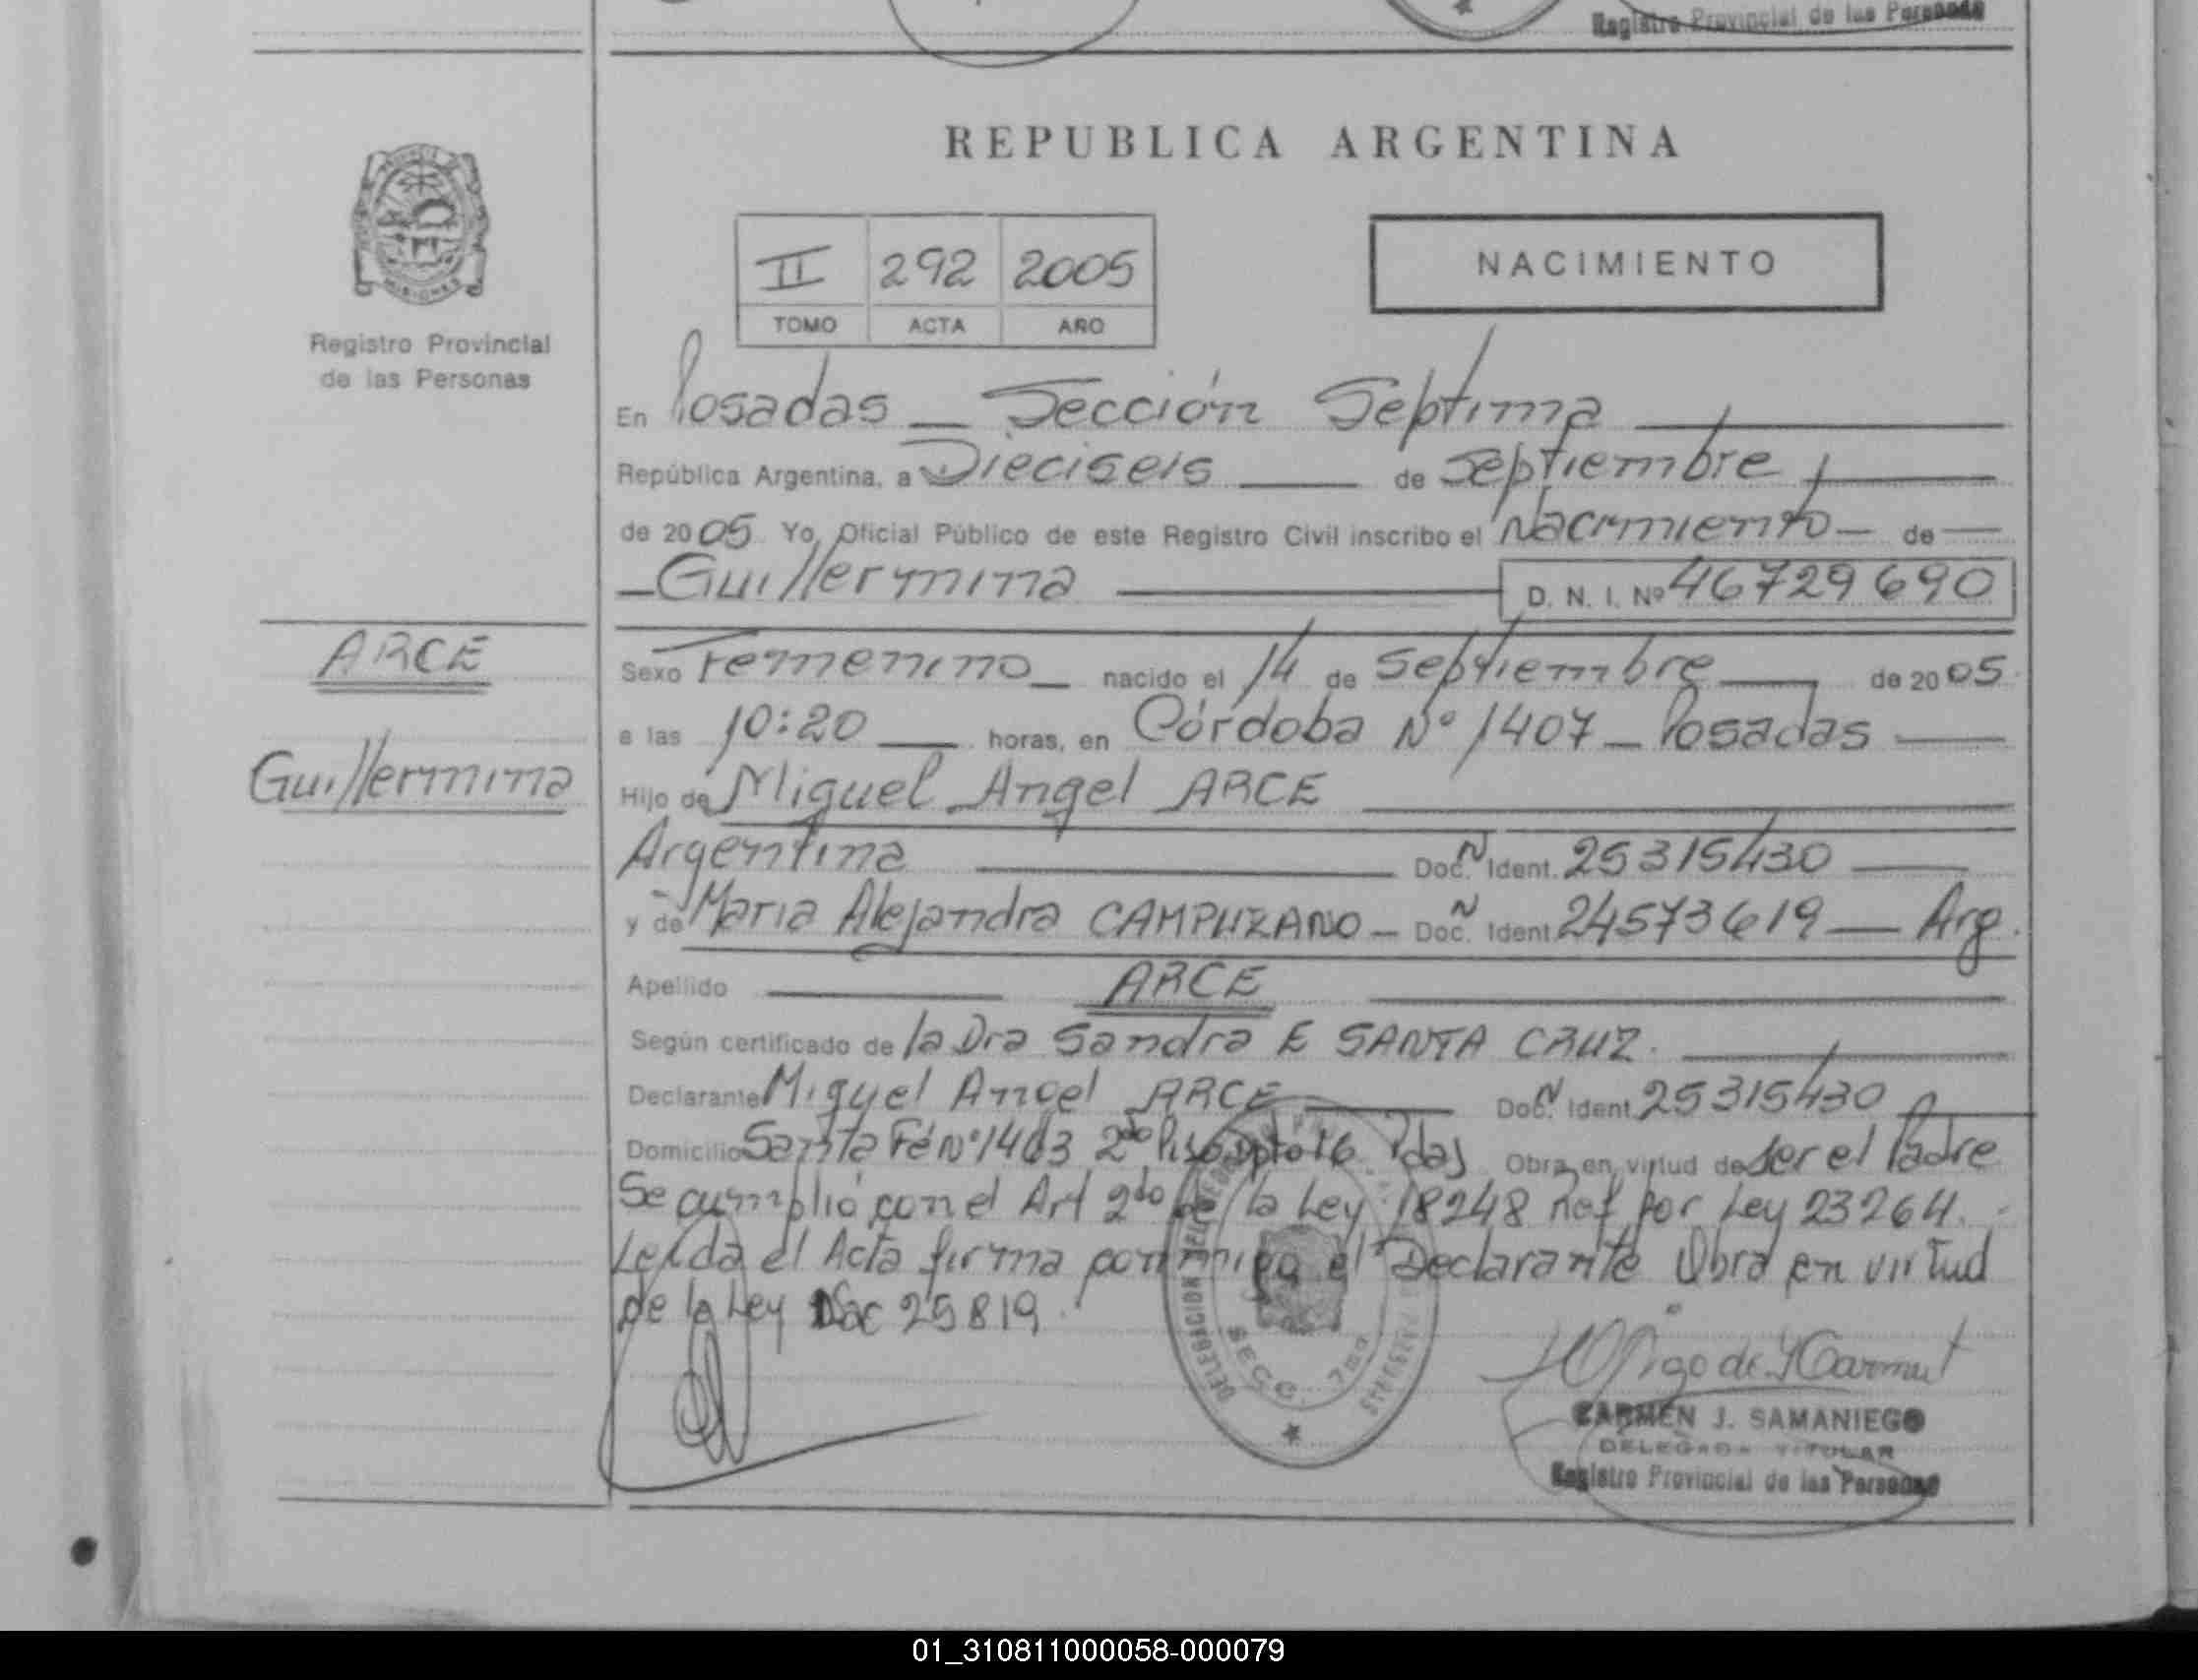 Registro Provincial de las Personas
REPUBLICA ARGENTINA
MISIONES
Registro Provincial
de las Personas
II 292 2005
TOMO ACTA AÑO
NACIMIENTO
En Posadas — Sección Septima
República Argentina, a Dieciseis de Septiembre
de 2005 Yo, Oficial Público de este Registro Civil inscribo el Nacimiento — de
Guillermina D. N. I. Nº 46729690
ARCE
Guillermina
Sexo Femenino nacido el 14 de Septiembre de 2005
a las 10:20 horas, en Córdoba Nº 1407 — Posadas
Hijo de Miguel Angel ARCE
Argentina Doc. N Ident. 25315430
y de Maria Alejandra CAMPUZANO — Doc. N Ident 24573619 — Arg.
Apellido ARCE
Según certificado de la Dra Sandra E SANTA CRUZ.
Declarante Miguel Angel ARCE Doc. N Ident. 25315430
Domicilio Santa Fé Nº 1463 2do Piso Dpto 16 Pdas Obra en virtud de ser el Padre
Se cumplió con el Art 2do de la Ley 18248 Ref por Ley 23264.
Leída el Acta firma conmigo el Declarante Obra en virtud
de la Ley Nac 25819.
DELEGACION SECC. 7ma
CARMEN J. SAMANIEGO
DELEGADA TITULAR
Registro Provincial de las Personas
01_310811000058-000079